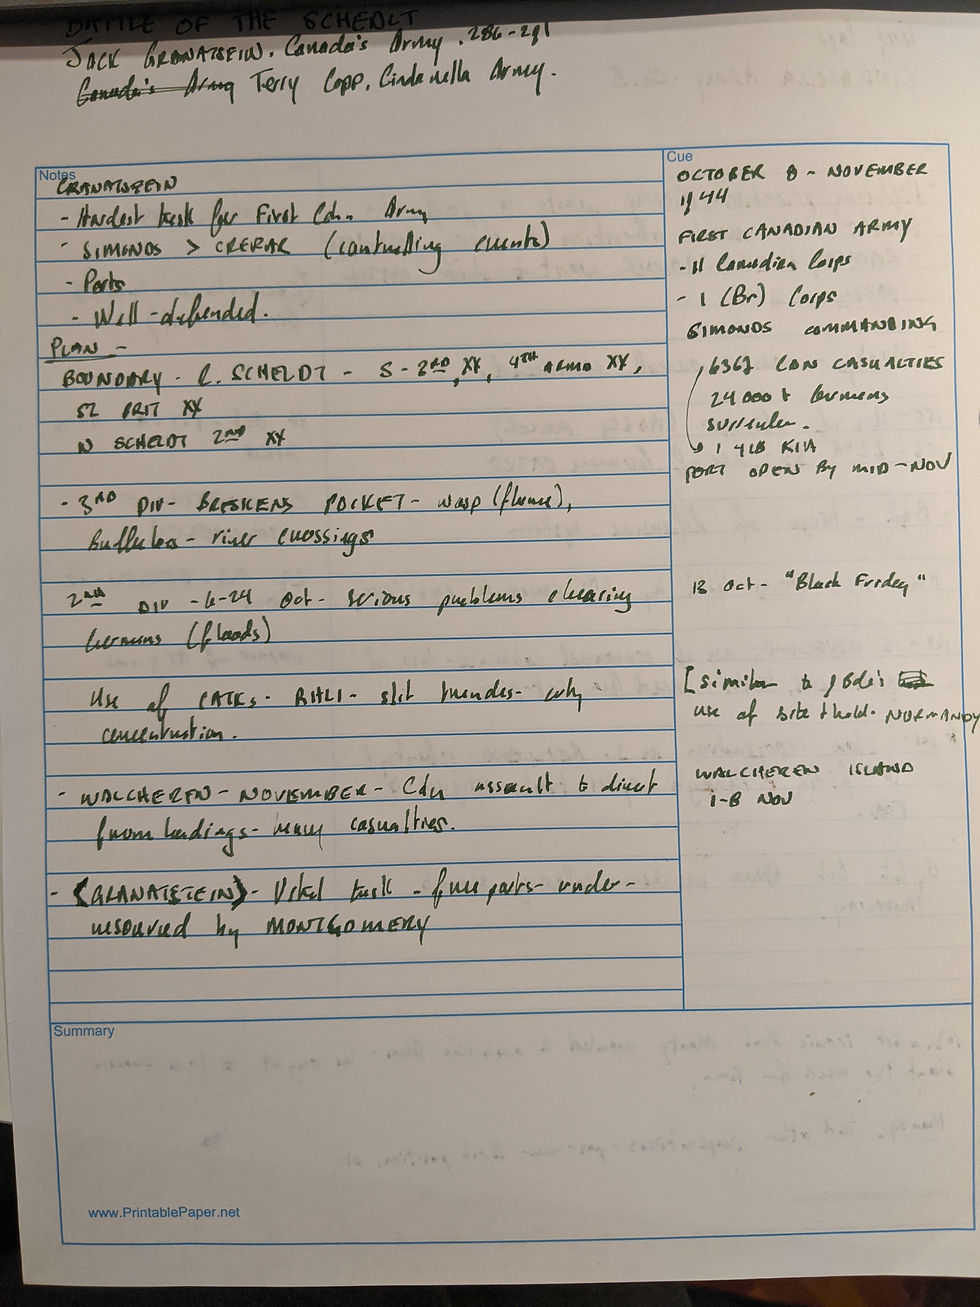 BATTLE OF THE SCHEALT
JACK GRANATSEIN. Canada's Army. 286-291
Canada's Army Terry Copp. Cinderella Army.
Notes
GRANATSEIN
- Hardest task for First Cdn. Army
- SIMONDS > CRERAR (controlling events)
- Ports
- Well-defended.
PLAN -
BOUNDARY - R. SCHELDT - S - 3RD XX, 4TH ARMD XX,
52 BRIT XX
N SCHELDT 2ND XX
- 3RD DIV - BRESKENS POCKET - wasp (flame),
Buffaloes - river crossings
2nd DIV - 6-24 Oct - serious problems clearing
Germans (floods)
Use of - RHLI - slit trenches - only
concentration.
- WALCHEREN - NOVEMBER - Cdn assault to direct
from landings - heavy casualties.
- (GRANATSTEIN) - Vital task - free ports - under-
resourced by MONTGOMERY
Cue
OCTOBER 8 - NOVEMBER
1944
FIRST CANADIAN ARMY
- II Canadian Corps
- 1 (Br) Corps
SIMONDS COMMANDING
6367 CDN CASUALTIES
24 000 + Germans
surrender.
1 418 KIA
PORT OPEN BY MID-NOV
13 Oct - "Black Friday"
[similar to
use of bite & hold - NORMANDY
WALCHEREN ISLAND
1-8 NOV
Summary
www.PrintablePaper.net